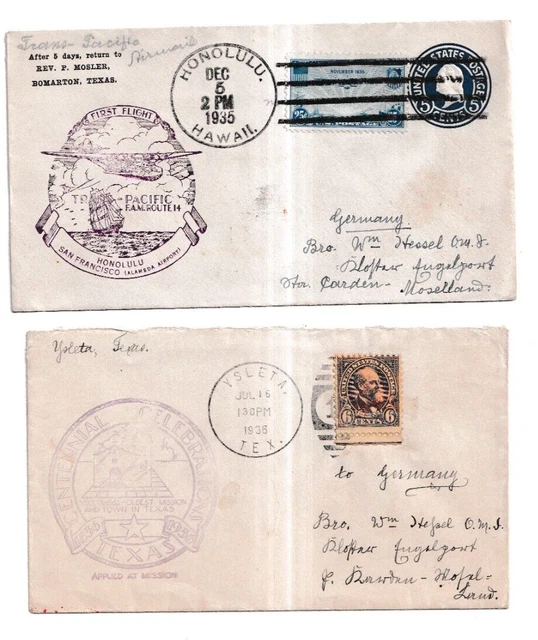 Trans-Pacific
Airmail
After 5 days, return to
REV. P. MOSLER,
BOMARTON, TEXAS.
HONOLULU.
DEC
5
2 PM
1935
HAWAII.
NOVEMBER 1935
25¢
UNITED STATES POSTAGE
5 5
CENTS
FIRST FLIGHT
TRANS-PACIFIC
F.A.M. ROUTE 14
HONOLULU
SAN FRANCISCO (ALAMEDA AIRPORT)
Germany.
Bro. Wm Hessel O.M.I.
Kloster Engelport
Sta. Carden-Moselland.
Ysleta, Texas.
YSLETA,
JUL 16
1 30 PM
1936
TEX.
UNITED STATES POSTAGE
6 6
CENTS
CENTENNIAL CELEBRATIONS
OLDEST MISSION
AND TOWN IN TEXAS
1936
TEXAS
APPLIED AT MISSION
to Germany
Bro. Wm Hessel O.M.I.
Kloster Engelport
p. Karden-Mosel-
land.